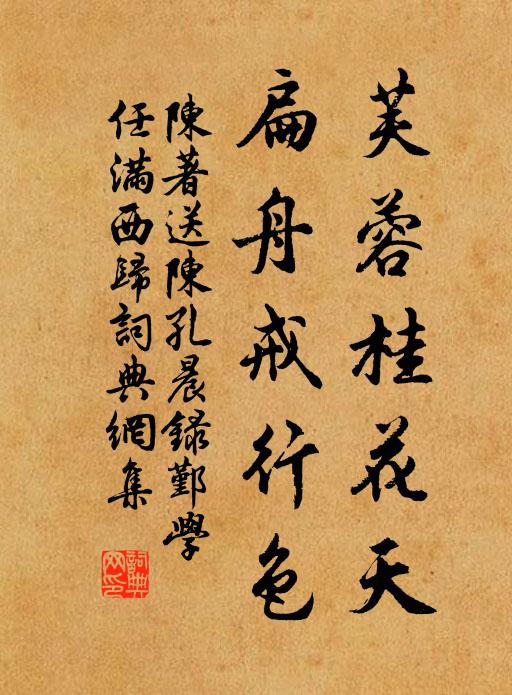 芙蓉桂花天
扁舟戒行色
陳著送陳孔晨錄鄞學
任滿西歸詞典網集
詞典網印